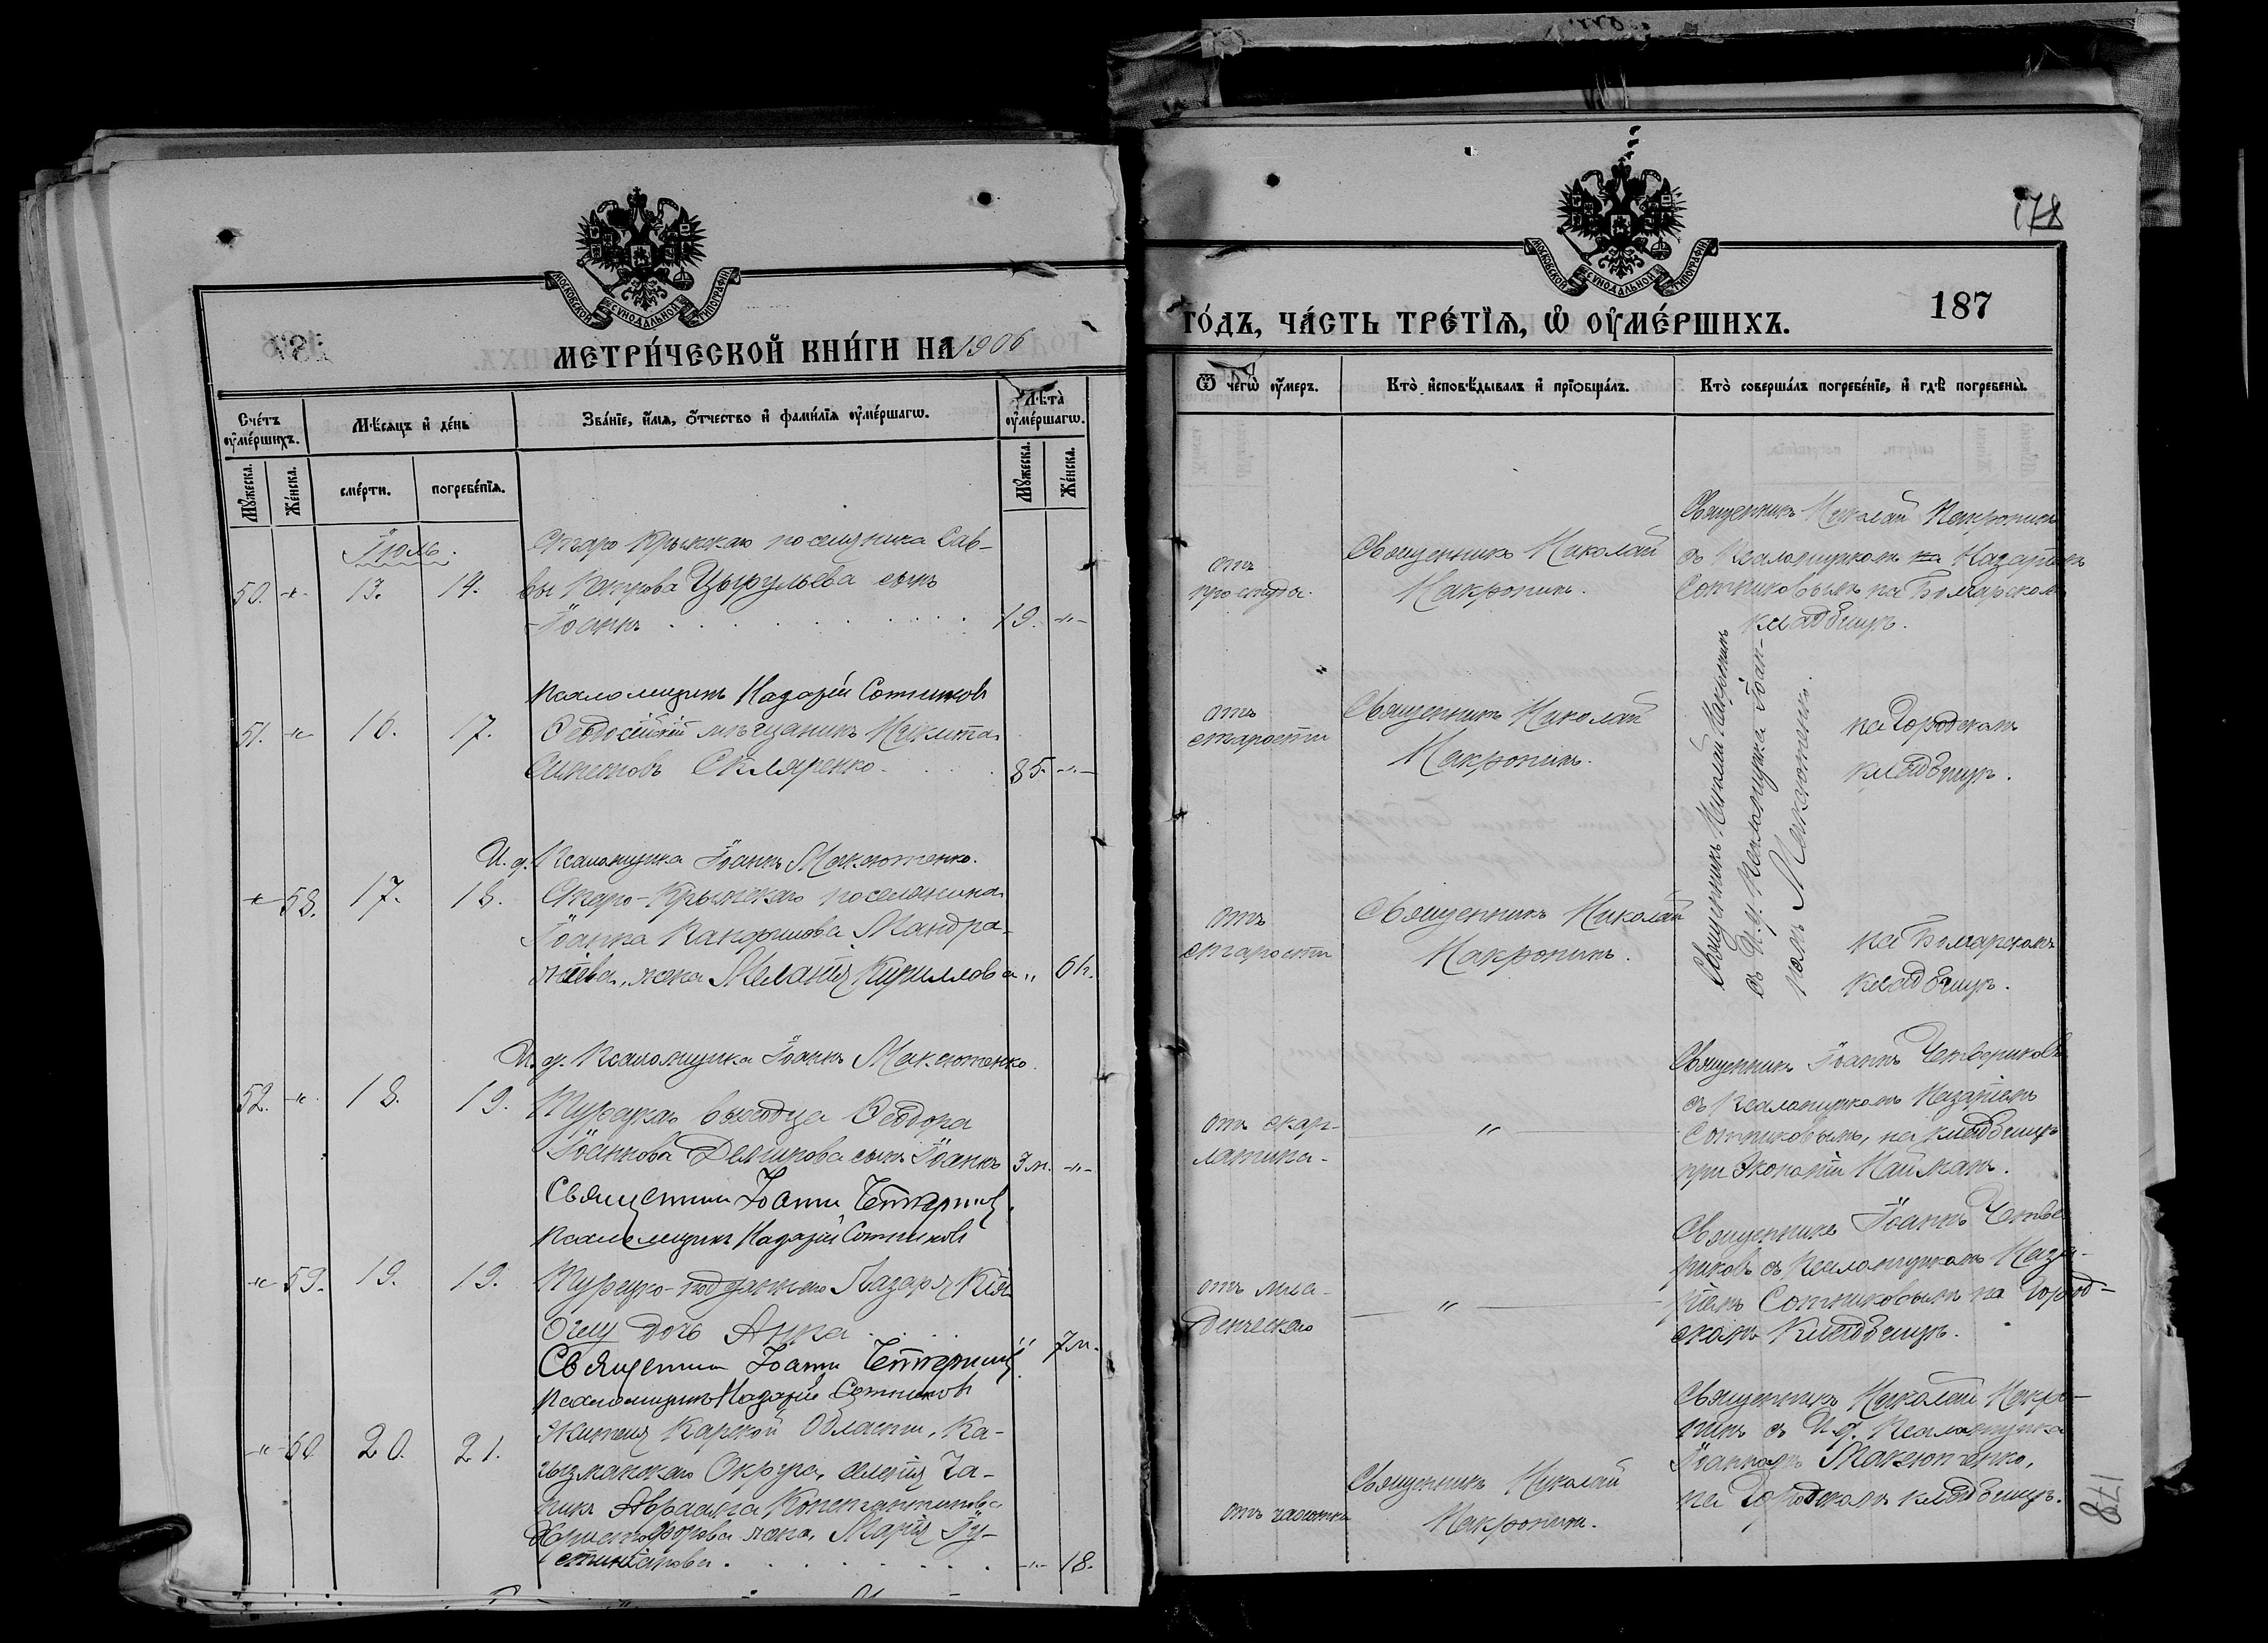 178
МОСКОВСКОЙ СУНОДАЛЬНОЙ ТИПОГРАФІИ
МЕТРИ́ЧЕСКОЙ КНИ́ГИ НА 1906
Сче́тъ оумершихъ.
Мѣсяцъ и де́нь
Зва́нїе, и́мя, о́тчество и фами́лїя оуме́ршагω.
Лѣта̀ оуме́ршагω.
Мꙋ́жеска.
Же́нска.
сме́рти.
погребе́нїя.
Мꙋ́жеска.
Же́нска.
Іюль.
Старо Крымскаго поселянина Сав-
50. -"- 13. 14. вы Петрова Цыгульева сынъ
Іоаннъ . . . . . . . 19. -"-
Псаломщикъ Назарій Сотниковъ
51. -"- 16. 17. Ѳеодосійскій мѣщанинъ Никита
Скляренко . . . . 85. -"-
И. д. Псаломщика Іоаннъ Максютенко.
-"- 58. 17. 18. Старо-Крымскаго поселянина
Іоанна Мандра-
жіева, жена Меланія Кириллова " 61.
И. д. Псаломщика Іоаннъ Максютенко.
52. -"- 18. 19. Турецкаго выходца Ѳеодора
Іоаннова сынъ Іоаннъ 3 м. -"-
Священникъ Іоаннъ Четвериковъ
Псаломщикъ Назарій Сотниковъ
-"- 59. 19. 19. Турецко-подданнаго Лазаря
Оглу дочь Анна . . . " 7 м.
Священникъ Іоаннъ Четвериковъ
Псаломщикъ Назарій Сотниковъ
-"- 60. 20. 21. Жителя Карской Области, Ка-
гызманскаго Округа, селенія Ча-
Авраама Константинова
Христофорова жена, Марія Іу-
стиніанова . . . . . . -"- 18.
МОСКОВСКОЙ СУНОДАЛЬНОЙ ТИПОГРАФІИ
ГО́ДЪ, ЧА́СТЬ ТРЕ́ТЇЯ, Ѡ ОУМЕ́РШИХЪ.
187
Ѿ чегѡ̀ оу́меръ.
Кто̀ и́сповѣ́дывалъ и прїѡбща́лъ.
Кто̀ соверша́лъ погребе́нїе, и гдѣ̀ погребены̀.
отъ простуды.
Священникъ Николай Макронинъ.
Священникъ Николай Макронинъ
съ Псаломщикомъ Назаріемъ
Сотниковымъ на Болгарскомъ
кладбищѣ.
отъ старости
Священникъ Николай Макронинъ.
Священникъ Николай Макронинъ
съ И. д. Псаломщика Іоан-
номъ Максютенко.
на Городскомъ
кладбищѣ.
отъ старости
Священникъ Николай Макронинъ.
на Болгарскомъ
кладбищѣ.
отъ скар-
латина-
"
Священникъ Іоаннъ Четвериковъ
съ Псаломщикомъ Назаріемъ
Сотниковымъ, на кладбищѣ
при Экономіи Найманъ.
отъ мла-
денческаго
"
Священникъ Іоаннъ Четве-
риковъ съ Псаломщикомъ Наза-
ріемъ Сотниковымъ на Город-
скомъ кладбищѣ.
отъ чахотки
Священникъ Николай
Макронинъ.
Священникъ Николай Макро-
нинъ съ И. д. Псаломщика
Іоанномъ Максютенко,
на Городскомъ кладбищѣ.
178